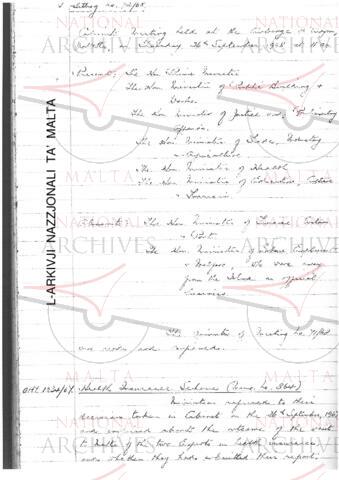 Sitting No. 72/68.
Cabinet Meeting held at the Auberge d'Aragon,
Valletta, on Thursday 26th September, 1968 at
Present: The Hon Prime Minister
The Hon Minister of Public Building &
Works.
The Hon Minister of Justice and Parliamentary
Affairs.
The Hon Minister of Trade, Industry
& Agriculture
The Hon Minister of Health
The Hon Minister of Education, Culture
& Tourism.
Absent: The Hon Minister of Finance, Customs
& Ports
The Hon Minister of Labour, Employment
& Welfare, who were away
from the Island on official
business.
The minutes of Meeting No. 71/68
were read and approved.
Health Insurance Scheme (Memo. No. 864)
Ministers referred to their
decision taken in Cabinet on the 26th September, 1967
and enquired about the outcome of the visit
to Malta of the two experts on health insurance
and whether they had submitted their report.
L-ARKIVJI NAZZJONALI TA' MALTA
NATIONAL
ARCHIVES
MALTA